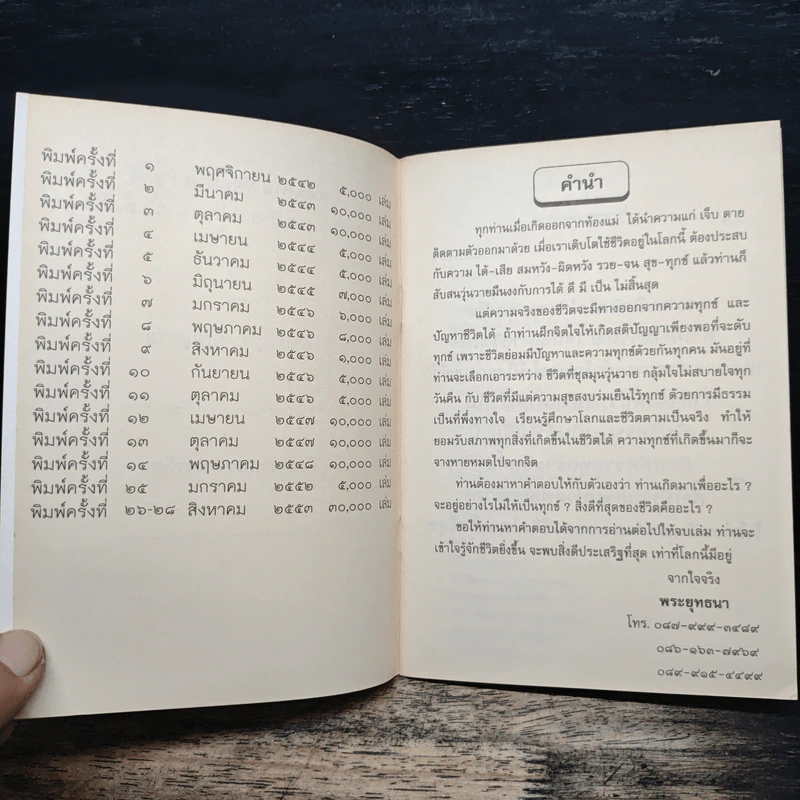 พิมพ์ครั้งที่ ๑ พฤศจิกายน ๒๕๔๒ ๕,๐๐๐ เล่ม
พิมพ์ครั้งที่ ๒ มีนาคม ๒๕๔๓ ๑๐,๐๐๐ เล่ม
พิมพ์ครั้งที่ ๓ ตุลาคม ๒๕๔๓ ๑๐,๐๐๐ เล่ม
พิมพ์ครั้งที่ ๔ เมษายน ๒๕๔๔ ๕,๐๐๐ เล่ม
พิมพ์ครั้งที่ ๕ ธันวาคม ๒๕๔๔ ๕,๐๐๐ เล่ม
พิมพ์ครั้งที่ ๖ มิถุนายน ๒๕๔๕ ๗,๐๐๐ เล่ม
พิมพ์ครั้งที่ ๗ มกราคม ๒๕๔๖ ๖,๐๐๐ เล่ม
พิมพ์ครั้งที่ ๘ พฤษภาคม ๒๕๔๖ ๘,๐๐๐ เล่ม
พิมพ์ครั้งที่ ๙ สิงหาคม ๒๕๔๖ ๑,๐๐๐ เล่ม
พิมพ์ครั้งที่ ๑๐ กันยายน ๒๕๔๖ ๕,๐๐๐ เล่ม
พิมพ์ครั้งที่ ๑๑ ตุลาคม ๒๕๔๖ ๕,๐๐๐ เล่ม
พิมพ์ครั้งที่ ๑๒ เมษายน ๒๕๔๗ ๑๐,๐๐๐ เล่ม
พิมพ์ครั้งที่ ๑๓ ตุลาคม ๒๕๔๗ ๑๐,๐๐๐ เล่ม
พิมพ์ครั้งที่ ๑๔ พฤษภาคม ๒๕๔๘ ๑๐,๐๐๐ เล่ม
พิมพ์ครั้งที่ ๒๕ มกราคม ๒๕๕๒ ๕,๐๐๐ เล่ม
พิมพ์ครั้งที่ ๒๖-๒๘ สิงหาคม ๒๕๕๓ ๓๐,๐๐๐ เล่ม
คำนำ
ทุกท่านเมื่อเกิดออกจากท้องแม่ ได้นำความแก่ เจ็บ ตาย
ติดตามตัวออกมาด้วย เมื่อเราเติบโตใช้ชีวิตอยู่ในโลกนี้ ต้องประสบ
กับความ ได้-เสีย สมหวัง-ผิดหวัง รวย-จน สุข-ทุกข์ แล้วท่านก็
สับสนวุ่นวายมึนงงกับการได้ ดี มี เป็น ไม่สิ้นสุด
แต่ความจริงของชีวิตจะมีทางออกจากความทุกข์ และ
ปัญหาชีวิตได้ ถ้าท่านฝึกจิตใจให้เกิดสติปัญญาเพียงพอที่จะดับ
ทุกข์ เพราะชีวิตย่อมมีปัญหาและความทุกข์ด้วยกันทุกคน มันอยู่ที่
ท่านจะเลือกเอาระหว่าง ชีวิตที่ชุลมุนวุ่นวาย กลุ้มใจไม่สบายใจทุก
วันคืน กับ ชีวิตที่มีแต่ความสุขสงบร่มเย็นไร้ทุกข์ ด้วยการมีธรรม
เป็นที่พึ่งทางใจ เรียนรู้ศึกษาโลกและชีวิตตามเป็นจริง ทำให้
ยอมรับสภาพทุกสิ่งที่เกิดขึ้นในชีวิตได้ ความทุกข์ที่เกิดขึ้นมาก็จะ
จางหายหมดไปจากจิต
ท่านต้องมาหาคำตอบให้กับตัวเองว่า ท่านเกิดมาเพื่ออะไร ?
จะอยู่อย่างไรไม่ให้เป็นทุกข์ ? สิ่งดีที่สุดของชีวิตคืออะไร ?
ขอให้ท่านหาคำตอบได้จากการอ่านต่อไปให้จบเล่ม ท่านจะ
เข้าใจรู้จักชีวิตยิ่งขึ้น จะพบสิ่งดีประเสริฐที่สุด เท่าที่โลกนี้มีอยู่
จากใจจริง
พระยุทธนา
โทร. ๐๘๗-๙๙๙-๓๔๘๙
๐๘๖-๑๖๓-๗๙๖๙
๐๘๙-๙๑๕-๔๔๙๙